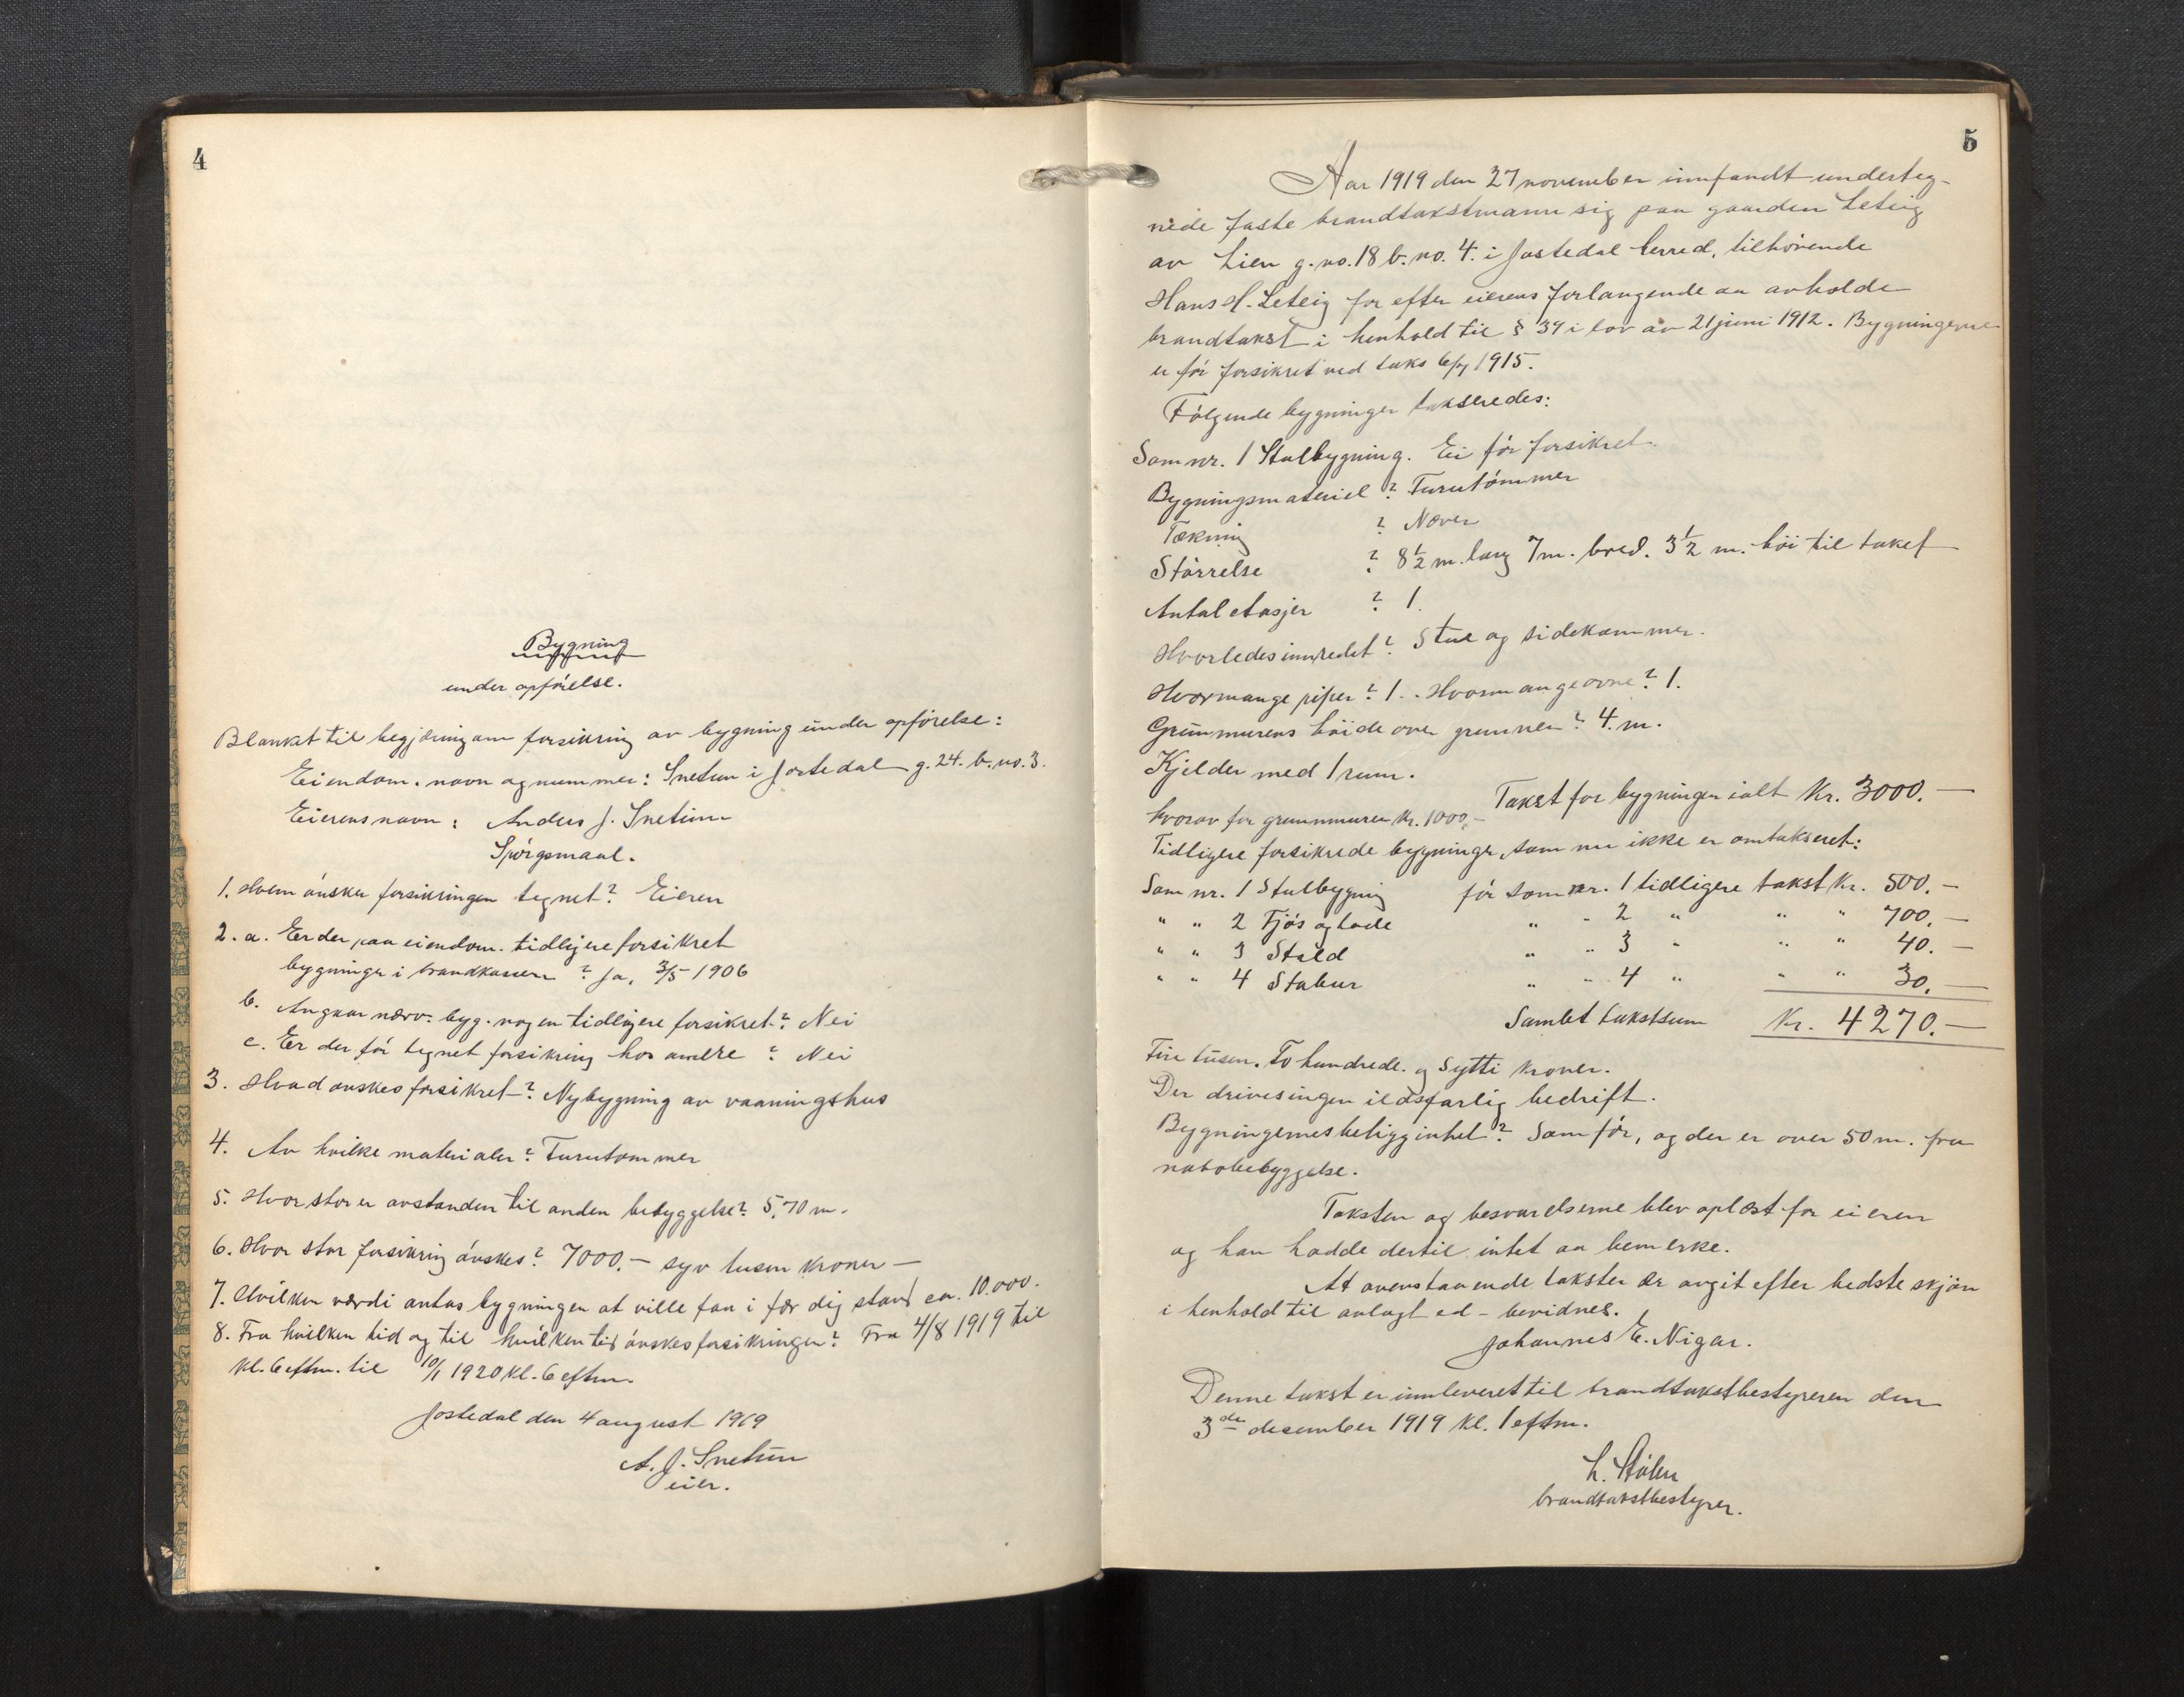 4
Bygning
under opförelse.
Blanket til begjæring om forsikring av bygning under opförelse:
Eiendom. navn og nummer: Snetun i Jostedal g. 24. b. no. 3.
Eierens navn: Anders J. Snetun
Spörgsmaal.
1. Hvem önsker forsikringen tegnet? Eieren
2. a. Er der paa eiendom. tidligere forsikret
bygninger i brandkassen? Ja, 3/5 1906
b. Angaar nærv. byg. nogen tidligere forsikret? Nei
c. Er der för tegnet forsikring hos andre? Nei
3. Hvad önskes forsikret? Nybygning av vaaningshus
4. Av hvilke materialer? Furutømmer
5. Hvor stor er avstanden til anden bebyggelse? 5,70 m.
6. Hvor stor forsikring önskes? 7000.— syv tusen kroner —
7. Hvilken værdi antas bygningen at ville faa i fær dig stand ca. 10.000.
8. Fra hvilken tid og til hvilken tid önskes forsikringen? Fra 4/8 1919 til
kl. 6 eftm. til 10/1 1920 kl. 6 eftm.
Jostedal den 4 august 1919
A. J. Snetun
eier.
5
Aar 1919 den 27 november innfandt underteg-
nede faste brandtakstmann sig paa gaarden Leteig
av Lien g. no. 18 b. no. 4. i Jostedal herred, tilhörende
Hans H. Leteig for efter eierens forlangende aa avholde
brandtakst i henhold til § 34 i lov av 21 juni 1912. Bygningerne
er för forsikret ved takst 1915.
Fölgende bygninger takseredes:
Som nr. 1 Stulbygning. Ei för forsikret
Bygningsmateriel? Furutömmer
Tækning ? Næver
Störrelse ? 8 1/2 m. lang 7 m. bred. 3 1/2 m. höi til taket
Antal etasjer ? 1.
Hvorledes innredet? Stue og sidekammer.
Hvor mange piper? 1. Hvor mange ovne? 1.
Grunnmurens höide over grunnen? 4. m.
Kjelder med 1 rum.
Takst for bygningen ialt Kr. 3000.—
hvorav for grunnmuren Kr. 1000,—
Tidligere forsikrede bygninger, som nu ikke er omtakseret:
Som nr. 1 Stulbygning för som nr. 1 tidligere takst Kr. 500.—
" " 2 Fjös og lade " " 2 " " " 700.—
" " 3 Stald " " 3 " " " 40.—
" " 4 Stabur " " 4 " " " 30.—
Samlet takstsum Kr. 4270.—
Fire tusen. To hundrede. og Sytti kroner.
Der drives ingen ildsfarlig bedrift.
Bygningernes beligginhet? Som för, og der er over 50 m. fra
nabobebyggelse.
Taksten og besvarelserne blev oplæst for eieren
og han hadde dertil intet aa bemerke.
At ovenstaaende takster er avgit efter bedste skjön
i henhold til avlagt ed – bevidnes.
Johannes E. Nigar.
Denne takst er innleveret til brandtakstbestyreren den
3de desember 1919 kl. 1 eftm.
L. Stölen
brandtakstbestyrer.